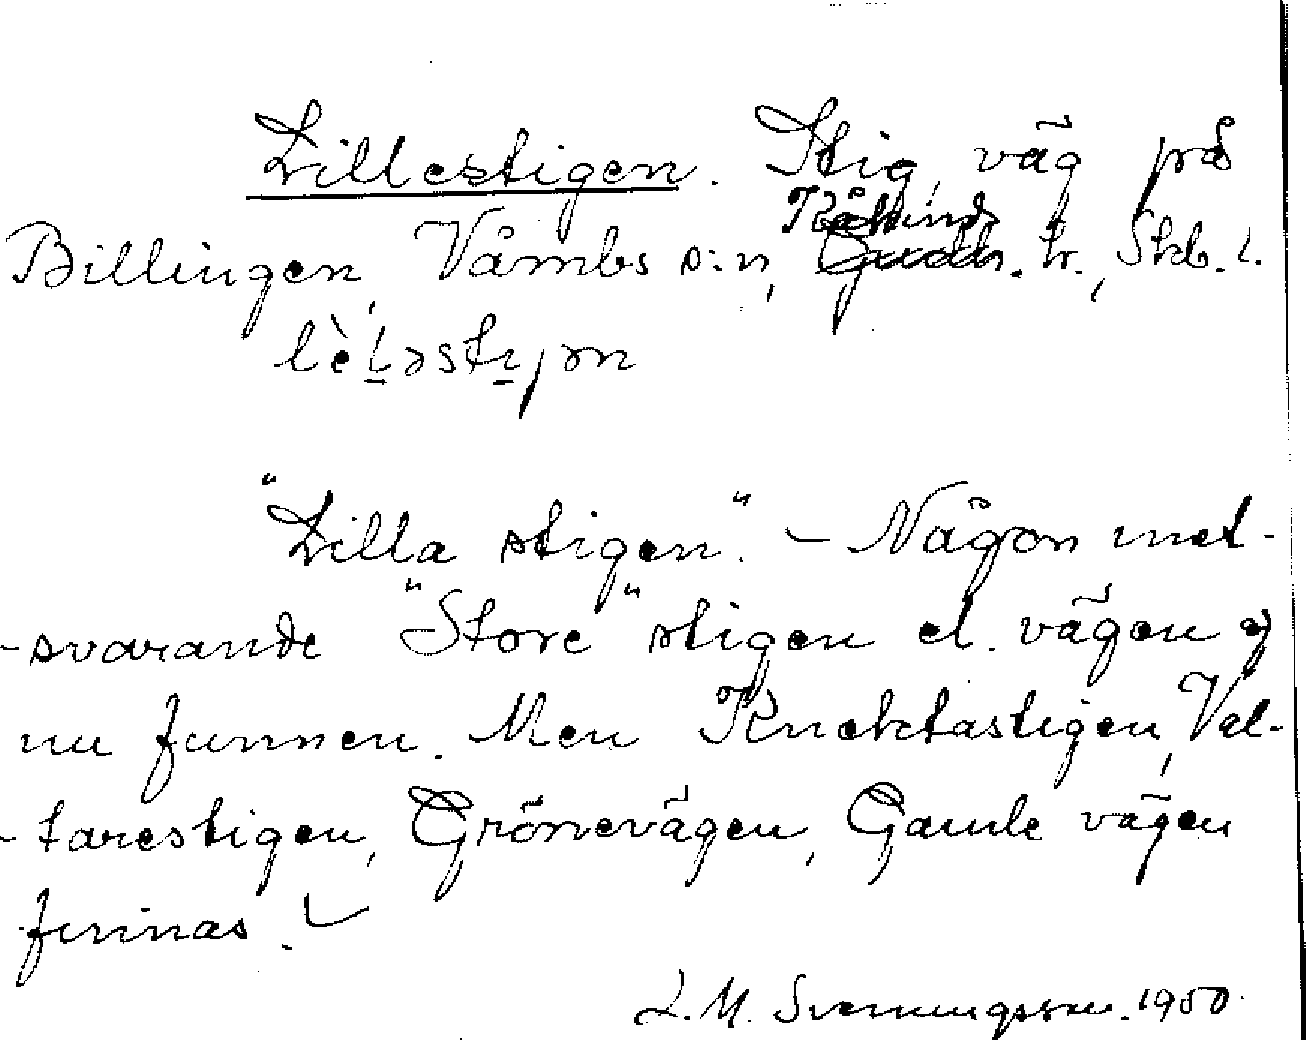 Lillestigen. Stig, väg på
Billingen, Våmbs s:n, Kåkinds hr., Skb. l.
lèlǝstıjǝn
"Lilla stigen." – Någon mot-
-svarande "Store" stigen el. vägen ej
nu funnen. Men Knektastigen, Val-
-tarestigen, Grönevägen, Gamle vägen
finnas. –
L. M. Svenungsson. 1950.